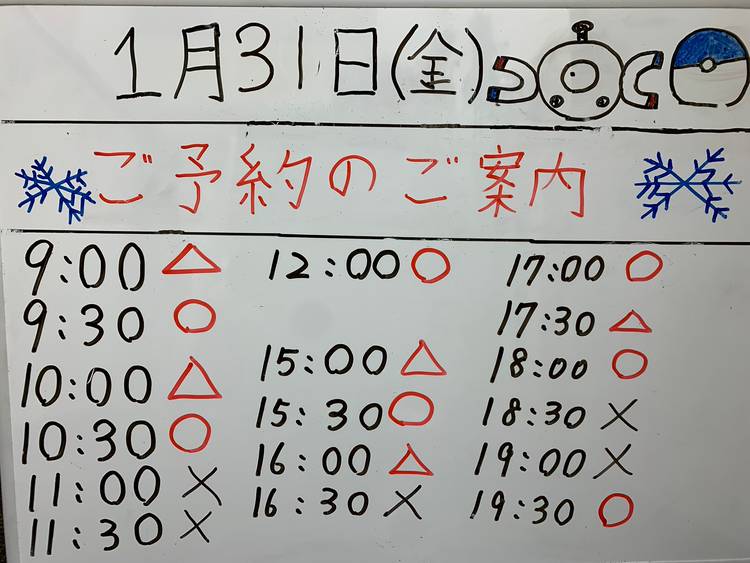 1月31日(金)
ご予約のご案内
9:00 △
9:30 ○
10:00 △
10:30 ○
11:00 ×
11:30 ×
12:00 ○
15:00 △
15:30 ○
16:00 △
16:30 ×
17:00 ○
17:30 △
18:00 ○
18:30 ×
19:00 ×
19:30 ○